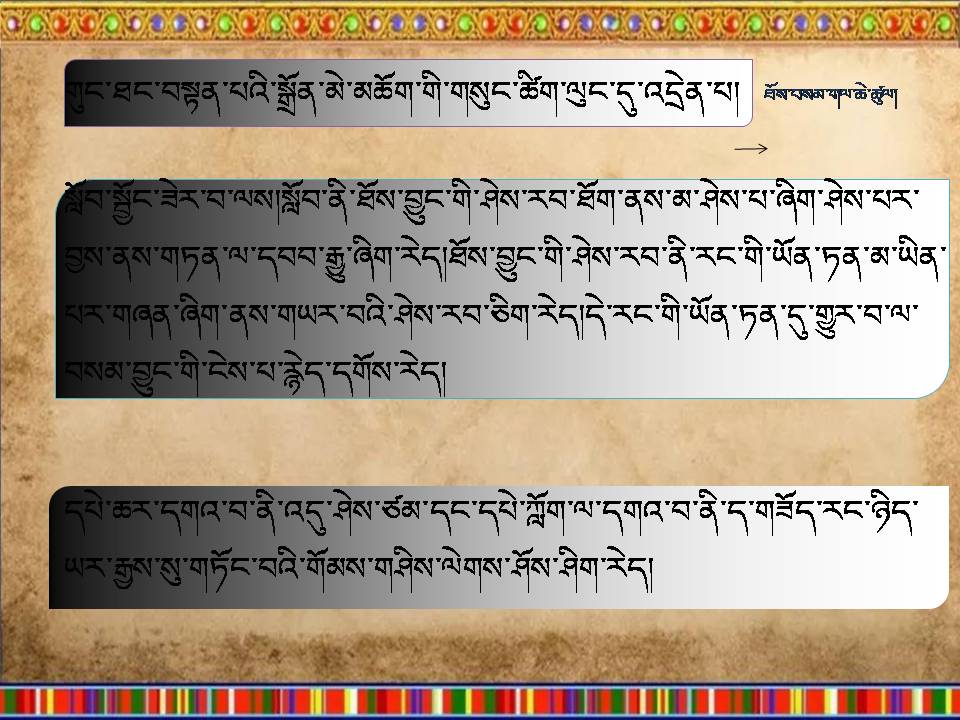 གུང་ཐང་བསྟན་པའི་སྒྲོན་མེ་མཆོག་གི་གསུང་ཚིག་ལུང་དུ་འདྲེན་པ།
ཐོས་བསམ་གལ་ཆེ་ཚུལ།
སློབ་སྦྱོང་ཟེར་བ་ལས།སློབ་ནི་ཐོས་བྱུང་གི་ཤེས་རབ་ཐོག་ནས་མ་ཤེས་པ་ཞིག་ཤེས་པར་
བྱས་ནས་གཏན་ལ་དབབ་རྒྱུ་ཞིག་རེད།ཐོས་བྱུང་གི་ཤེས་རབ་ནི་རང་གི་ཡོན་ཏན་མ་ཡིན་
པར་གཞན་ཞིག་ནས་གཡར་བའི་ཤེས་རབ་ཅིག་རེད།དེ་རང་གི་ཡོན་ཏན་དུ་གྱུར་བ་ལ་
བསམ་བྱུང་གི་ངེས་པ་རྙེད་དགོས་རེད།
དཔེ་ཆར་དགའ་བ་ནི་འདུ་ཤེས་ཙམ་དང་དཔེ་ཀློག་ལ་དགའ་བ་ནི་ད་གཟོད་རང་ཉིད་
ཡར་རྒྱས་སུ་གཏོང་བའི་གོམས་གཤིས་ལེགས་ཤོས་ཤིག་རེད།